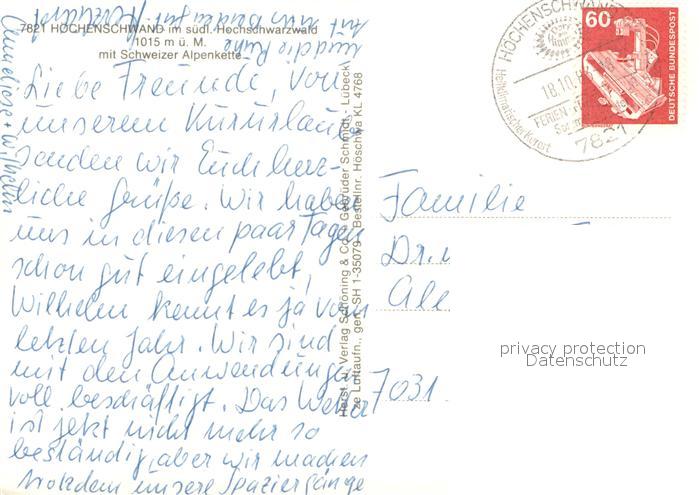 7821 HÖCHENSCHWAND im südl. Hochschwarzwald
1015 m ü. M.
mit Schweizer Alpenkette
Liebe Freunde, von
unserem Kururlaub
senden wir Euch herz-
liche Grüße. Wir haben
uns in diesen paar Tagen
schon gut eingelebt,
Wilhelm kennt es ja vom
letzten Jahr. Wir sind
mit den Anwendungen
voll beschäftigt. Das Wetter
ist jetzt nicht mehr so
beständig, aber wir machen
trotzdem unsere Spaziergänge
und die Ruhe
tut uns beiden gut
Anneliese + Wilhelm
Horst W. Verlag Schöning & Co. + Gebrüder Schmidt, Lübeck
Luftaufn., gen. SH 1-35079 Bestellnr. Höschwa KL 4768
HÖCHENSCHWAND
18.10.
FERIEN
Heilklimatischer Kurort
7821
60
DEUTSCHE BUNDESPOST
Familie
Dr.
7031
privacy protection
Datenschutz